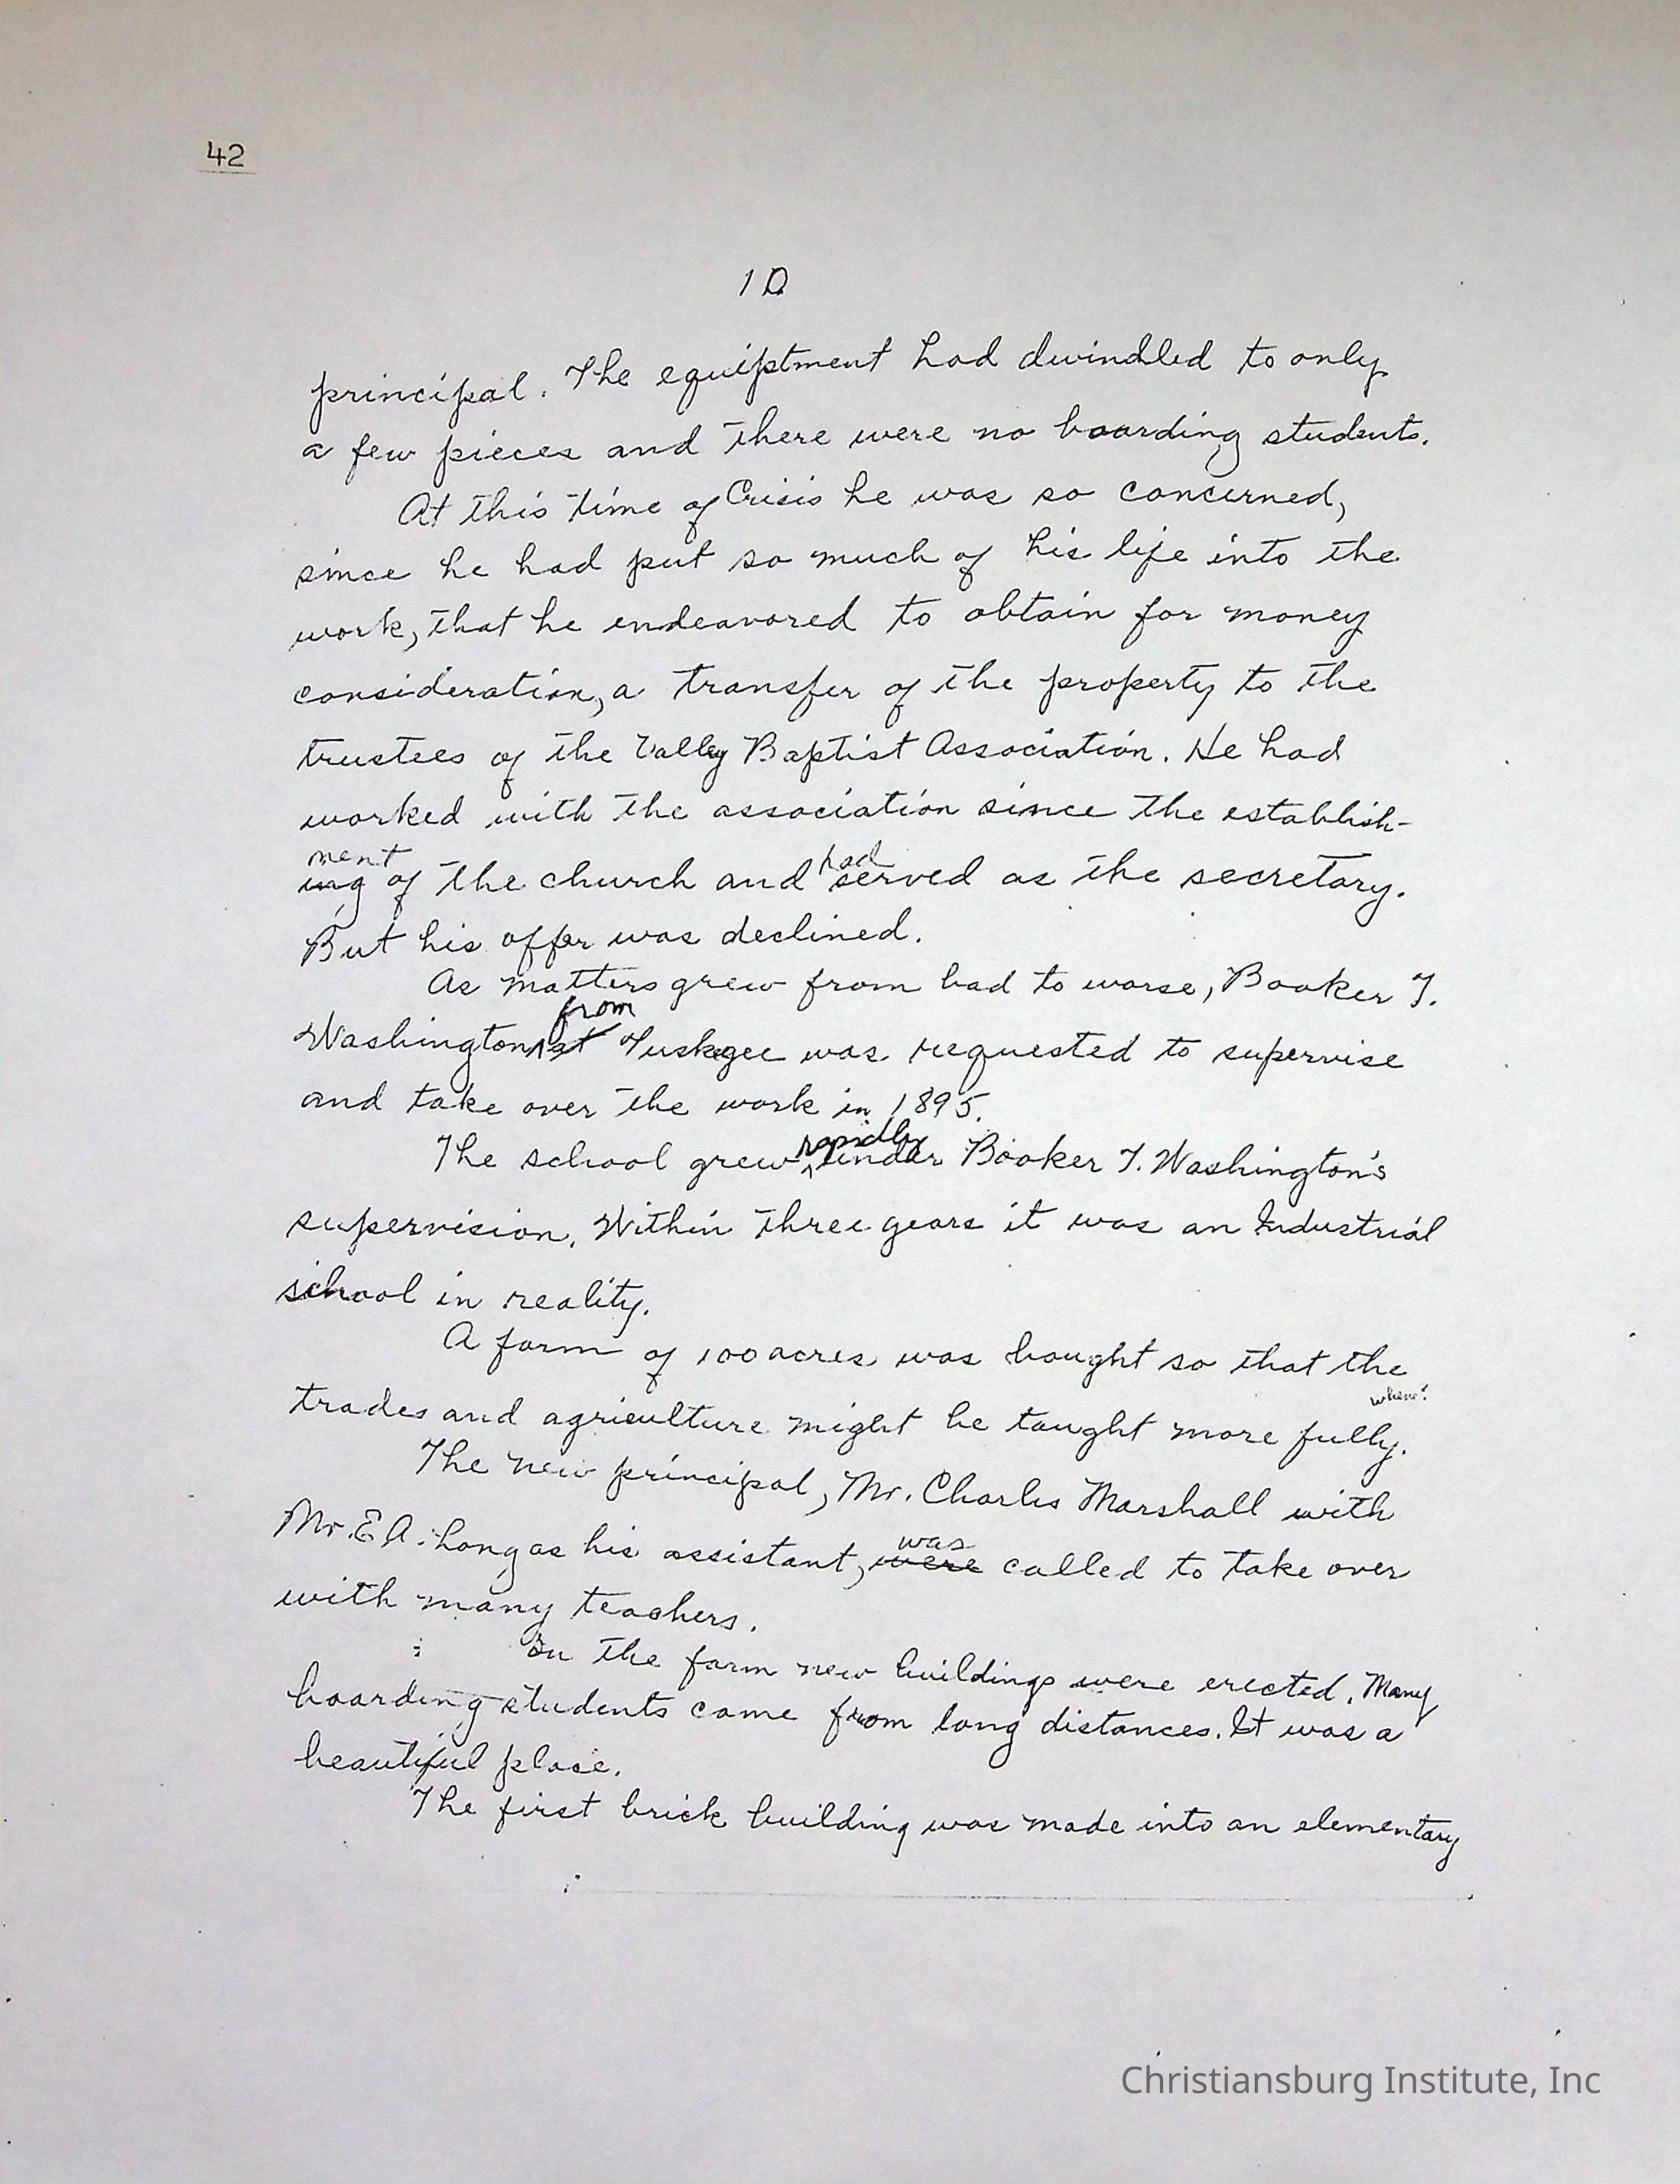 42
10
principal. The equiptment had dwindled to only
a few pieces and there were no boarding students.
At this time of Crisis he was so concerned,
since he had put so much of his life into the
work, that he endeavored to obtain for money
consideration, a transfer of the property to the
trustees of the Valley Baptist Association. He had
worked with the association since the establish-
ment
ing of the church and had served as the secretary.
But his offer was declined.
As matters grew from bad to worse, Booker T.
from
Washington at Tuskegee was requested to supervise
and take over the work in 1895.
rapidly
The school grew under Booker T. Washington's
supervision. Within three years it was an Industrial
school in reality.
A farm of 100 acres was bought so that the
when?
trades and agriculture might be taught more fully.
The new principal, Mr. Charles Marshall with
was
Mr. E A. Long as his assistant, were called to take over
with many teachers.
On the farm new buildings were erected. Many
boarding students came from long distances. It was a
beautiful place.
The first brick building was made into an elementary
Christiansburg Institute, Inc